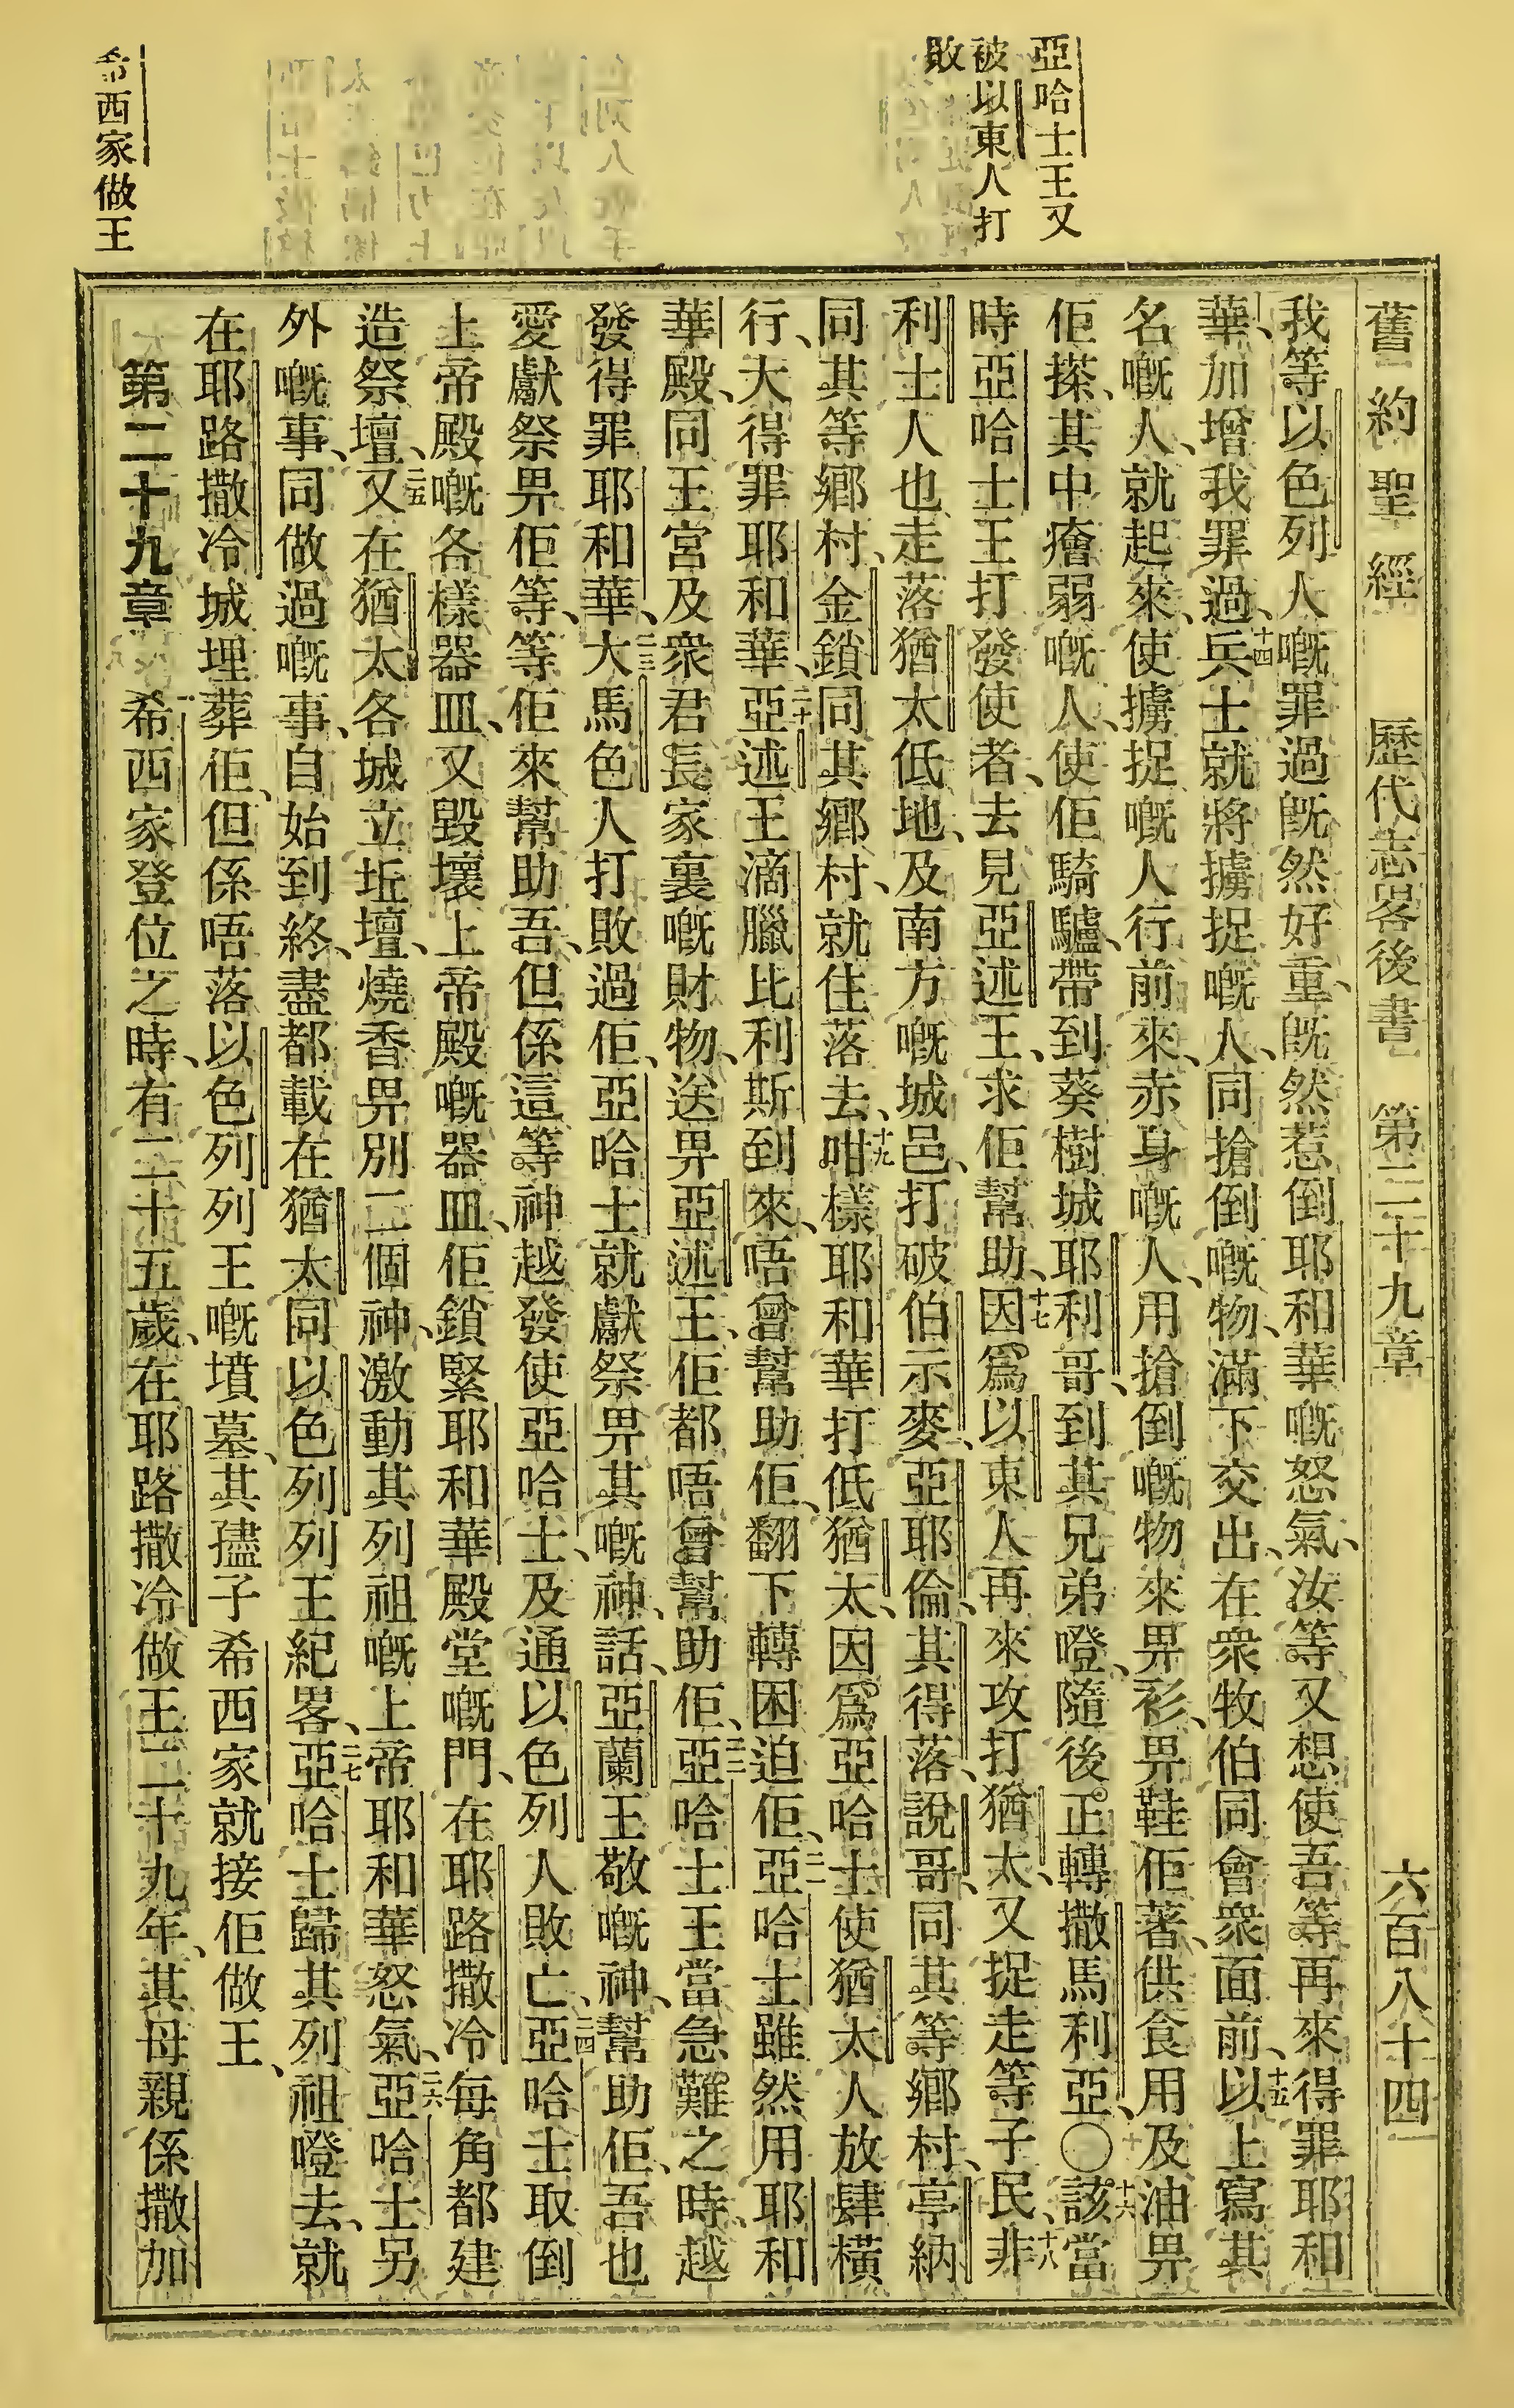 舊約聖經 歷代志畧後書 第二十九章 六百八十四
亞哈士王又
被以東人打
敗
希西家做王
我等以色列人嘅罪過旣然好重、旣然惹倒耶和華嘅怒氣、汝等又想使吾等再來得罪耶和
華、加增我罪過、十四兵士就將擄捉嘅人、同搶倒嘅物、滿下交出、在衆牧伯同會衆面前、十五以上寫其
名嘅人、就起來、使擄捉嘅人行前來、赤身嘅人、用搶倒嘅物來畀衫、畀鞋佢著、供食用及油畀
佢搽、其中癐弱嘅人、使佢騎驢、帶到葵樹城耶利哥、到其兄弟嶝、隨後正轉撒馬利亞、〇十六該當
時亞哈士王打發使者、去見亞述王、求佢幫助、十七因爲以東人再來攻打猶太、又捉走等子民、十八非
利士人也走落猶太低地、及南方嘅城邑、打破伯示麥、亞耶倫、其得落、說哥、同其等鄉村、亭納
同其等鄉村、金鎖同其鄉村、就住落去、十九咁樣耶和華打低猶太、因爲亞哈士使猶太人放肆橫
行、大得罪耶和華、二十亞述王滴臘比利斯到來、唔曾幫助佢、翻下轉困迫佢、二一亞哈士雖然用耶和
華殿、同王宮及衆君長家裏嘅財物、送畀亞述王、佢都唔曾幫助佢、二二亞哈士王當急難之時、越
發得罪耶和華、二三大馬色人打敗過佢、亞哈士就獻祭畀其嘅神、話、亞蘭王敬嘅神、幫助佢、吾也
愛獻祭畀佢等、等佢來幫助吾、但係這等神越發使亞哈士、及通以色列人敗亡、二四亞哈士取倒
上帝殿嘅各樣器皿、又毀壞上帝殿嘅器皿、佢鎖緊耶和華殿堂嘅門、在耶路撒冷每角都建
造祭壇、二五又在猶太各城立坵壇、燒香畀別二個神、激動其列祖嘅上帝耶和華怒氣、二六亞哈士另
外嘅事、同做過嘅事、自始到終、盡都載在猶太同以色列列王紀畧、二七亞哈士歸其列祖嶝去、就
在耶路撒冷城埋葬佢、但係唔落以色列列王嘅墳墓、其𡥧子希西家就接佢做王、
第二十九章 一希西家登位之時、有二十五歲、在耶路撒冷做王二十九年、其母親係撒加